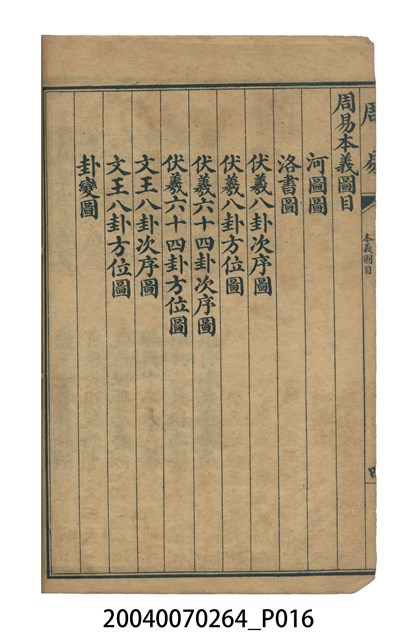 周易本義圖目
河圖圖
洛書圖
伏羲八卦次序圖
伏羲八卦方位圖
伏羲六十四卦次序圖
伏羲六十四卦方位圖
文王八卦次序圖
文王八卦方位圖
卦變圖
周易
本義圖目
20040070264_P016